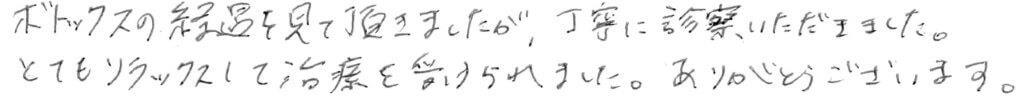 ボトックスの経過を見て頂きましたが、丁寧に診察いただきました。
とてもリラックスして治療を受けられました。ありがとうございます。